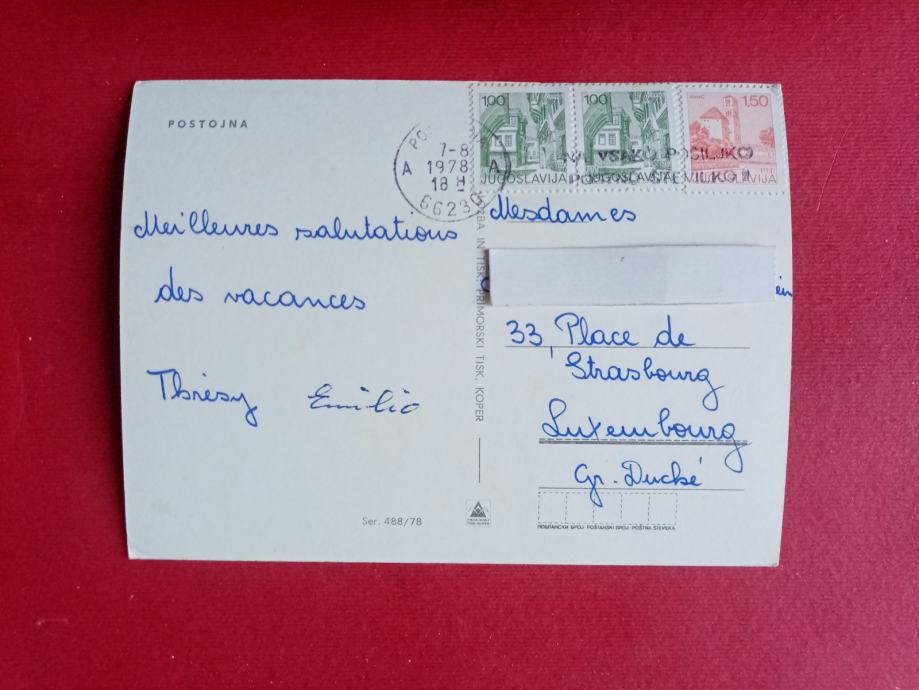 POSTOJNA
7-8
A 1978 A
18 H
66230
100
JUGOSLAVIJA
100
JUGOSLAVIJA
1,50
NA VSAKO POŠILJKO
POŠTNO ŠTEVILKO!
Meilleures salutations
des vacances
Thrésy Emilio
Mesdames
33, Place de
Strasbourg
Luxembourg
Gr. Duché
IN TISK: PRIMORSKI TISK, KOPER
Ser. 488/78
ПОШТАНСКИ БРОЈ-POŠTANSKI BROJ-POŠTNA ŠTEVILKA